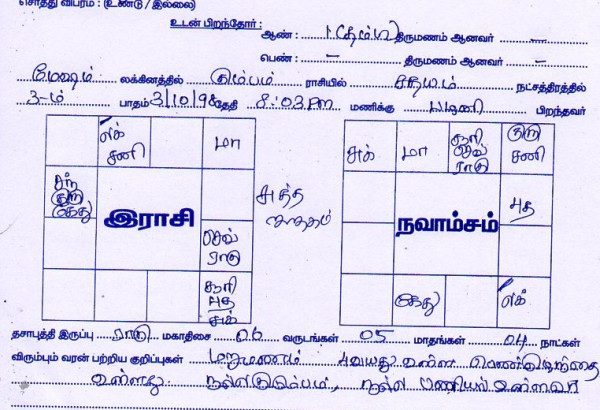 சொத்து விபரம் : (உண்டு / இல்லை)
உடன் பிறந்தோர் :
ஆண் : 1 திருமணம் ஆனவர் —
பெண் : – திருமணம் ஆனவர் –
மேஷம் லக்கினத்தில் கும்பம் ராசியில் சதயம் நட்சத்திரத்தில்
3-ம் பாதம் 3/10/98 தேதி 8:03 PM மணிக்கு பிறந்தவர்
லக் சனி
மா
சந் குரு கேது
இராசி
செவ் ராகு
சூரி புத சுக்
சுத்த ஜாதகம்
சுக்
மா
சூரி செவ் ராகு
குரு சனி
புத
நவாம்சம்
கேது
லக்
தசாபுத்தி இருப்பு ராகு மகாதிசை 06 வருடங்கள் 05 மாதங்கள் 04 நாட்கள்
விரும்பும் வரன் பற்றிய குறிப்புகள் மறுமணம் 4வயது உள்ள பெண்குழந்தை
உள்ளது நல்லகுடும்பம், நல்ல பணியில் உள்ளவர்